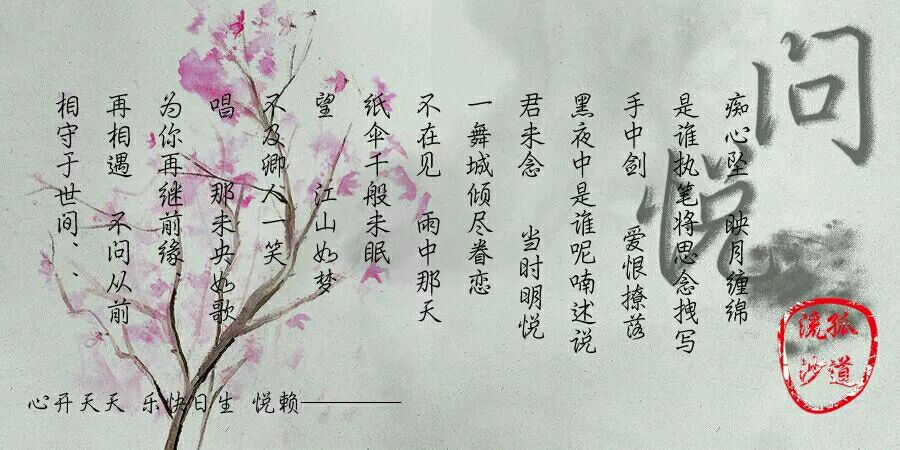 问悦
痴心坠 映月缠绵
是谁执笔将思念拽写
手中剑 爱恨撩落
黑夜中是谁呢喃述说
君未念 当时明悦
一舞城倾尽眷恋
不在见 雨中那天
纸伞千般未眠
望 江山如梦
不及卿人一笑
唱 那未央如歌
为你再继前缘、
再相遇 不问从前
相守于世间、、
心开天天 乐快日生 悦赖————
孤道
流沙